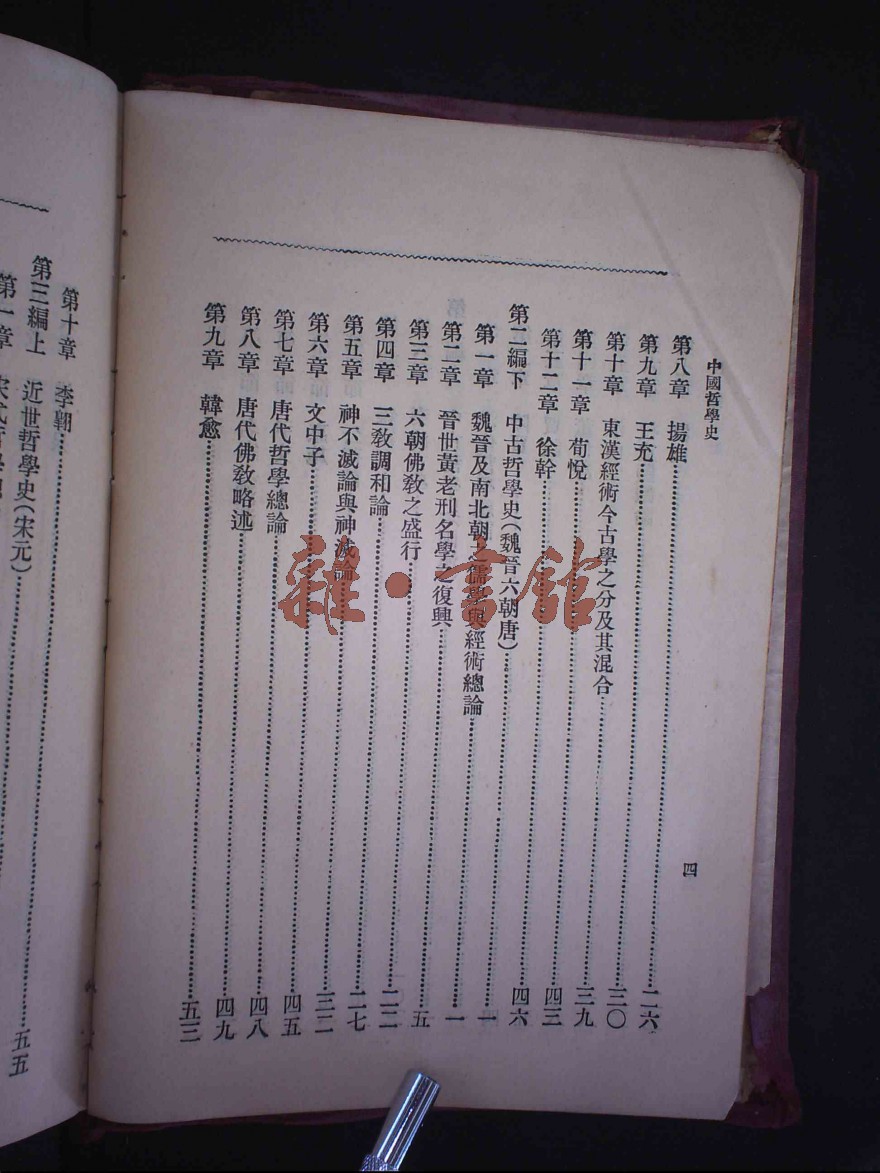 中國哲學史
四
第八章 揚雄……二六
第九章 王充……三〇
第十章 東漢經術今古學之分及其混合……三九
第十一章 荀悅……四三
第十二章 徐幹……四六
第二編下 中古哲學史(魏晉六朝唐)……一
第一章 魏晉及南北朝之儒學與經術總論……一
第二章 晉世黃老刑名學之復興……五
第三章 六朝佛教之盛行……二二
第四章 三教調和論……二七
第五章 神不滅論與神滅論……三二
第六章 文中子……四五
第七章 唐代哲學總論……四八
第八章 唐代佛教略述……四九
第九章 韓愈……五三
第十章 李翱……五五
第三編上 近世哲學史(宋元)
第一章
雜·書館